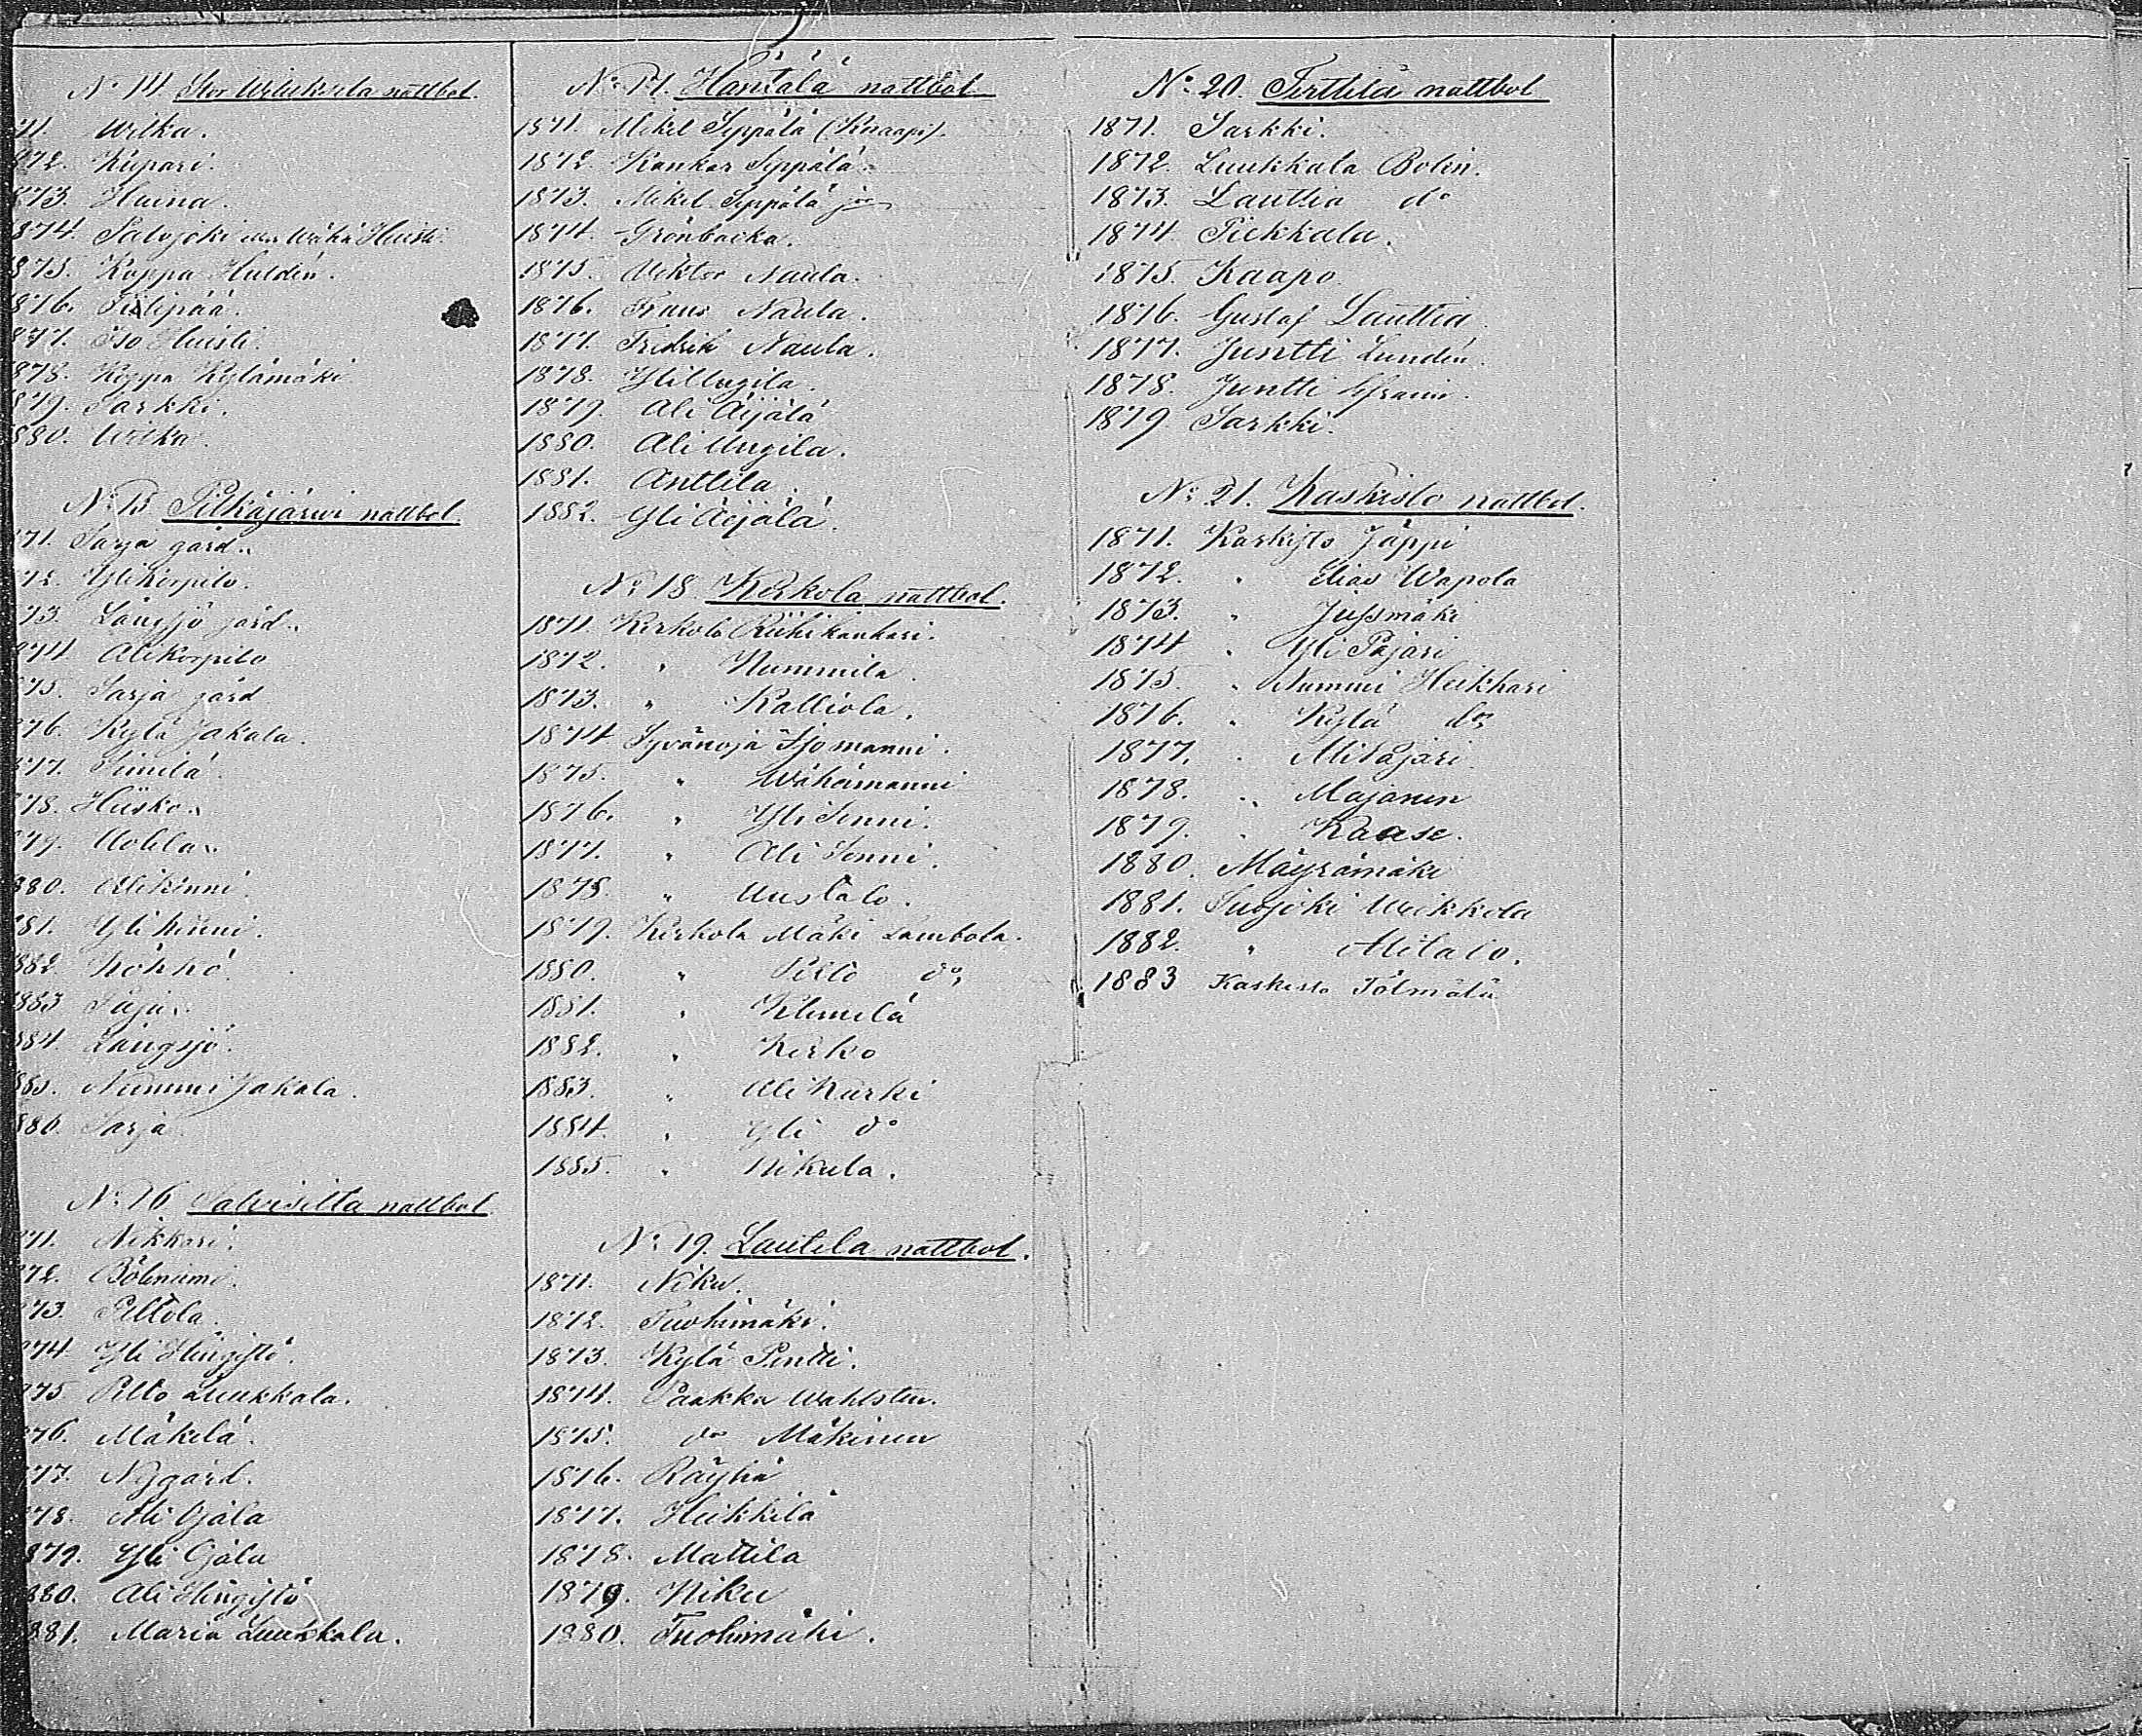 No 14 Stor Wiluksela nattbol.
71. Wilka.
872. Kupari.
873. Huina.
874. Salojoki eller Wähä Huisti.
875. Koppa Huldén.
876. Tiilipää.
877. Iso Huisti.
878. Koppa Kylämäki
879. Sarkki.
880. Wilka.
No 15 Pitkäjärwi nattbol.
71. Sarja gård.
72. Ylikorpilo.
73. Långsjö gård.
874. Alikorpilo
75. Sarja gård
76. Kylä Jakala.
877. Simila.
878. Hiisko.
879. Uotila.
880. Alikinni.
881. Ylikinni.
882. Kökkö.
883 Paju.
884. Långsjö.
885. Nummi Jakala.
886. Sarja
No 16 Palvisilta nattbol.
71. Nikkari.
72. Bölnumi.
73. Peltola.
874 Yli Hingistö.
875 Pelto Luukkala.
876. Mäkelä.
877. Nygård.
878. Ali Ojala
879. Yli Ojala
880. Ali Hingistö
881. Maria Luukkala.
No 17. Häntälä nattbol
1871. Mikel Seppälä (Knaapi).
1872. Kankar Seppälä.
1873. Mikel Seppälä jör
1874. Grönbacka.
1875. Viktor Naula.
1876. Frans Naula.
1877. Fredrik Naula.
1878. Yli Ungila.
1879. Ali Äijälä
1880. Ali Ungila.
1881. Anttila.
1882. Yli Äijälä.
No 18. Kerkola nattbol.
1871. Kerkola Riihikankari.
1872. " Nummila.
1873. " Kalliola.
1874 Syvänoja Isomanni.
1875. " Wähämanni
1876. " Yli Senni.
1877. " Ali Senni.
1878. " Uustalo.
1879. Kerkola Mäki Lambola.
1880. " Pelto do
1881. " Klemelä
1882. " Kerko
1883. " Ali Kurki
1884. " Yli do
1885. " Nikula.
No 19. Lautela nattbol.
1871. Niku.
1872. Tuohimäki.
1873. Kylä Pentti.
1874. Paakka Wahlsten.
1875. do Mäkinen
1876. Räyhä
1877. Heikkilä
1878. Mattila
1879. Niku
1880. Tuohimäki.
No 20. Terttilä nattbol
1871. Sarkki.
1872. Luukkala Bolin.
1873. Lauttia do
1874. Piekkala.
1875. Kaapo
1876. Gustaf Lauttia
1877. Juntti Lundén.
1878. Juntti Efraim.
1879 Sarkki.
No 21. Kaskisto nattbol.
1871. Kaskisto Jäppi
1872. " Elias Wapola
1873. " Jussmäki
1874 " Yli Pajari
1875. " Nummi Heikkari
1876. " Kylä do
1877. " Alitajari
1878. " Majanen
1879. " Kaase.
1880. Mäyrämäki
1881. Suojoki Weikkola
1882. " Alitalo.
1883 Kaskisto Tölmälä